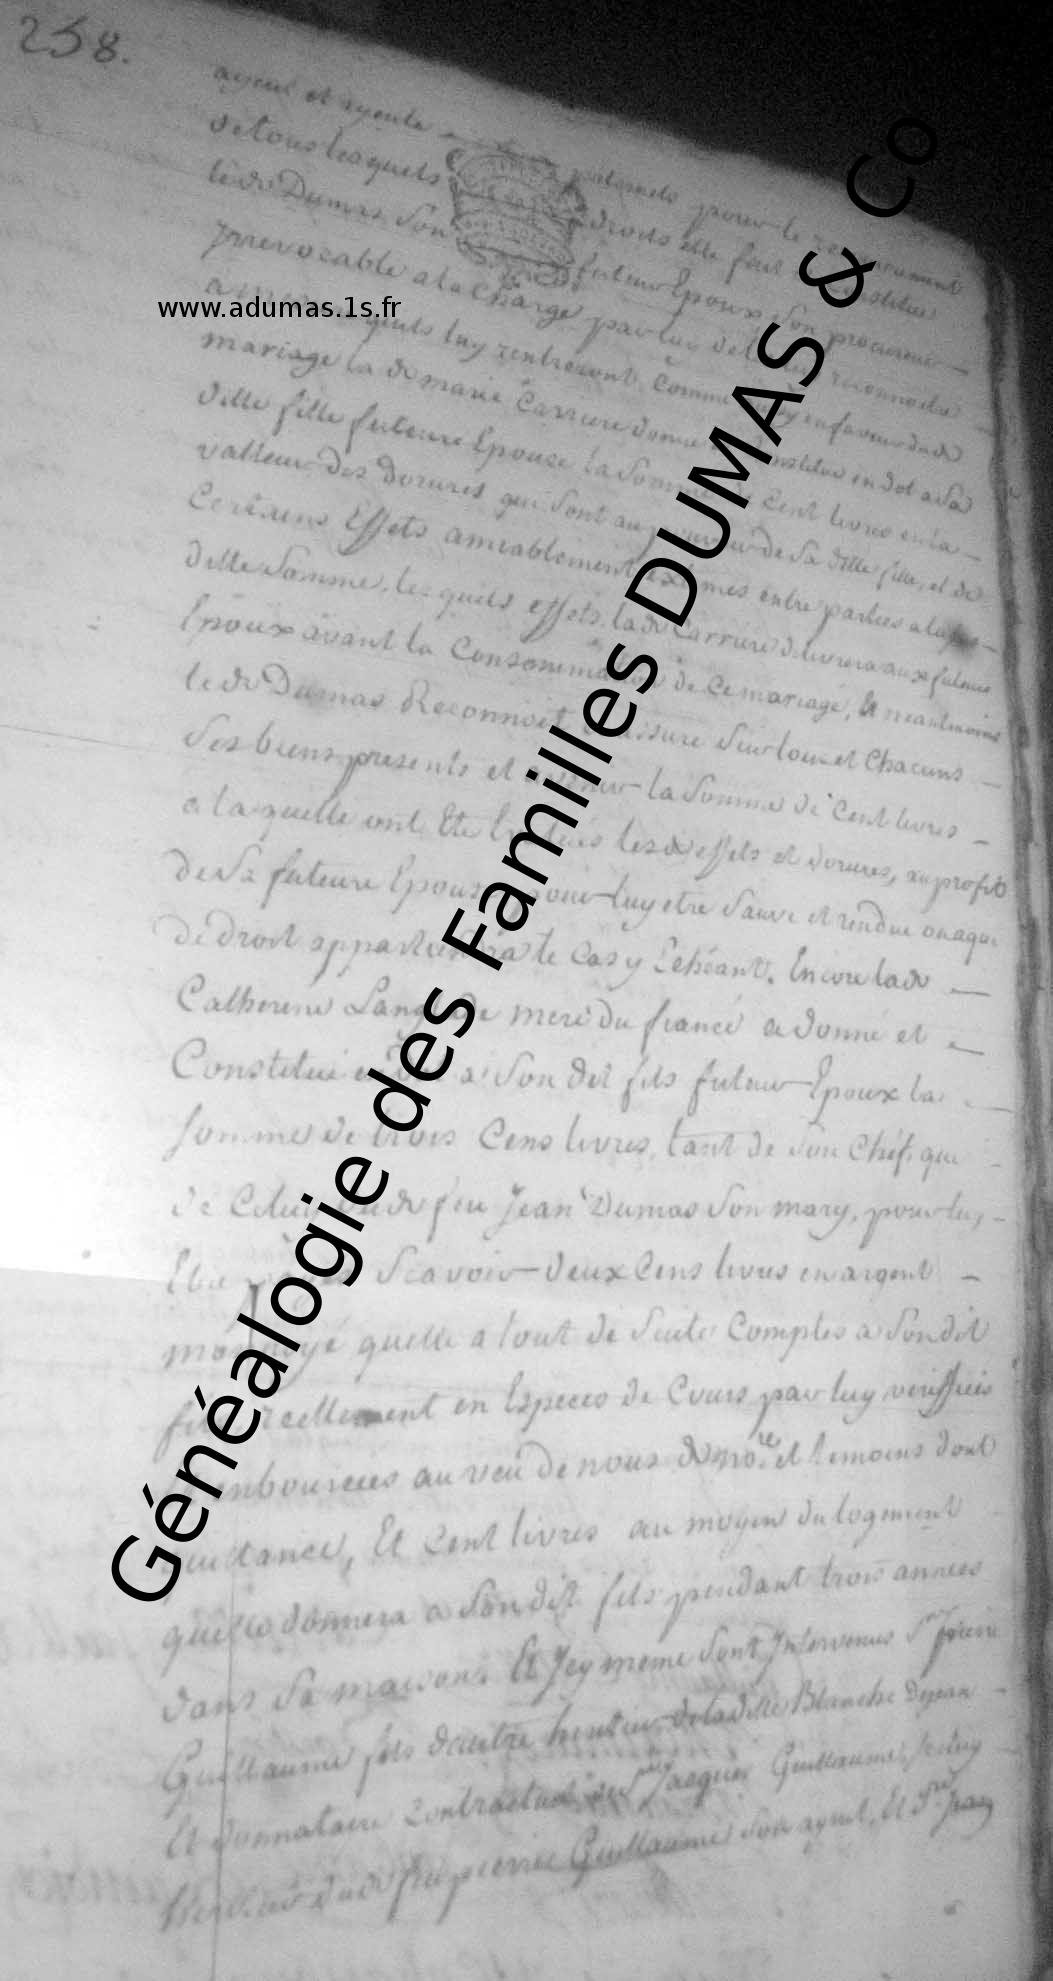 258.
ayeul et ayeule paternels pour le
de tous lesquels droits elle fait
le dt Dumas son futeur Epoux, son procureur
jrrevocable a la charge par luy de
www.adumas.1s.fr
luy rentreront Comme en faveur dudt
mariage la dt marie Carriere donne Constitue en dot a sa
ditte fille future Epouse la somme de Cent livres en la
valleur des dorures qui sont au pouvoir de sa ditte fille, et de
Certains Effets amiablement extimés entre parties a la
ditte somme, lesquels effets, la dt Carriere delivrera aux futeurs
Epoux avant la Consommation de Ce mariage, Et neantmoins
le dt Dumas Reconnoit et assure sur tous et Chacuns
ses biens presents et avenir la somme de Cent livres
a la quelle ont Eté les dt effets et dorures, au profit
de sa future Epouse pour luy etre sauvé et rendue ou a qui
de droit appartiendra le Cas y Echéant. Encore la dt
Catherine Langlade mere du fiancé a donné et
Constitué en dot a son dit fils futeur Epoux la
somme de trois Cens livres, tant de son Chéf, que
de Celuy du dt feu Jean Dumas son mary, pour luy
Etre Scavoir deux Cens livres en argent
monnoyé quelle a tout de suite Comptés a son dit
fils reellement en Especes de Cours par luy veriffiées
Et embourcées au veu de nous dt nore. et temoins dont
quittance, Et Cent livres au moyen du logement
quelle donnera a son dit fils pendant trois années
dans sa maison. Et Jcy meme sont Jntervenus Sr pierre
Guillaume fils dautre heritier de la ditte Blanche Dejean
Et donnataire Contractuel de Sr Jacques Guillaume, Jceluy
heritier du dt feu pierre Guillaume son ayeul, Et Sr Jean
Généalogie des Familles DUMAS & Co